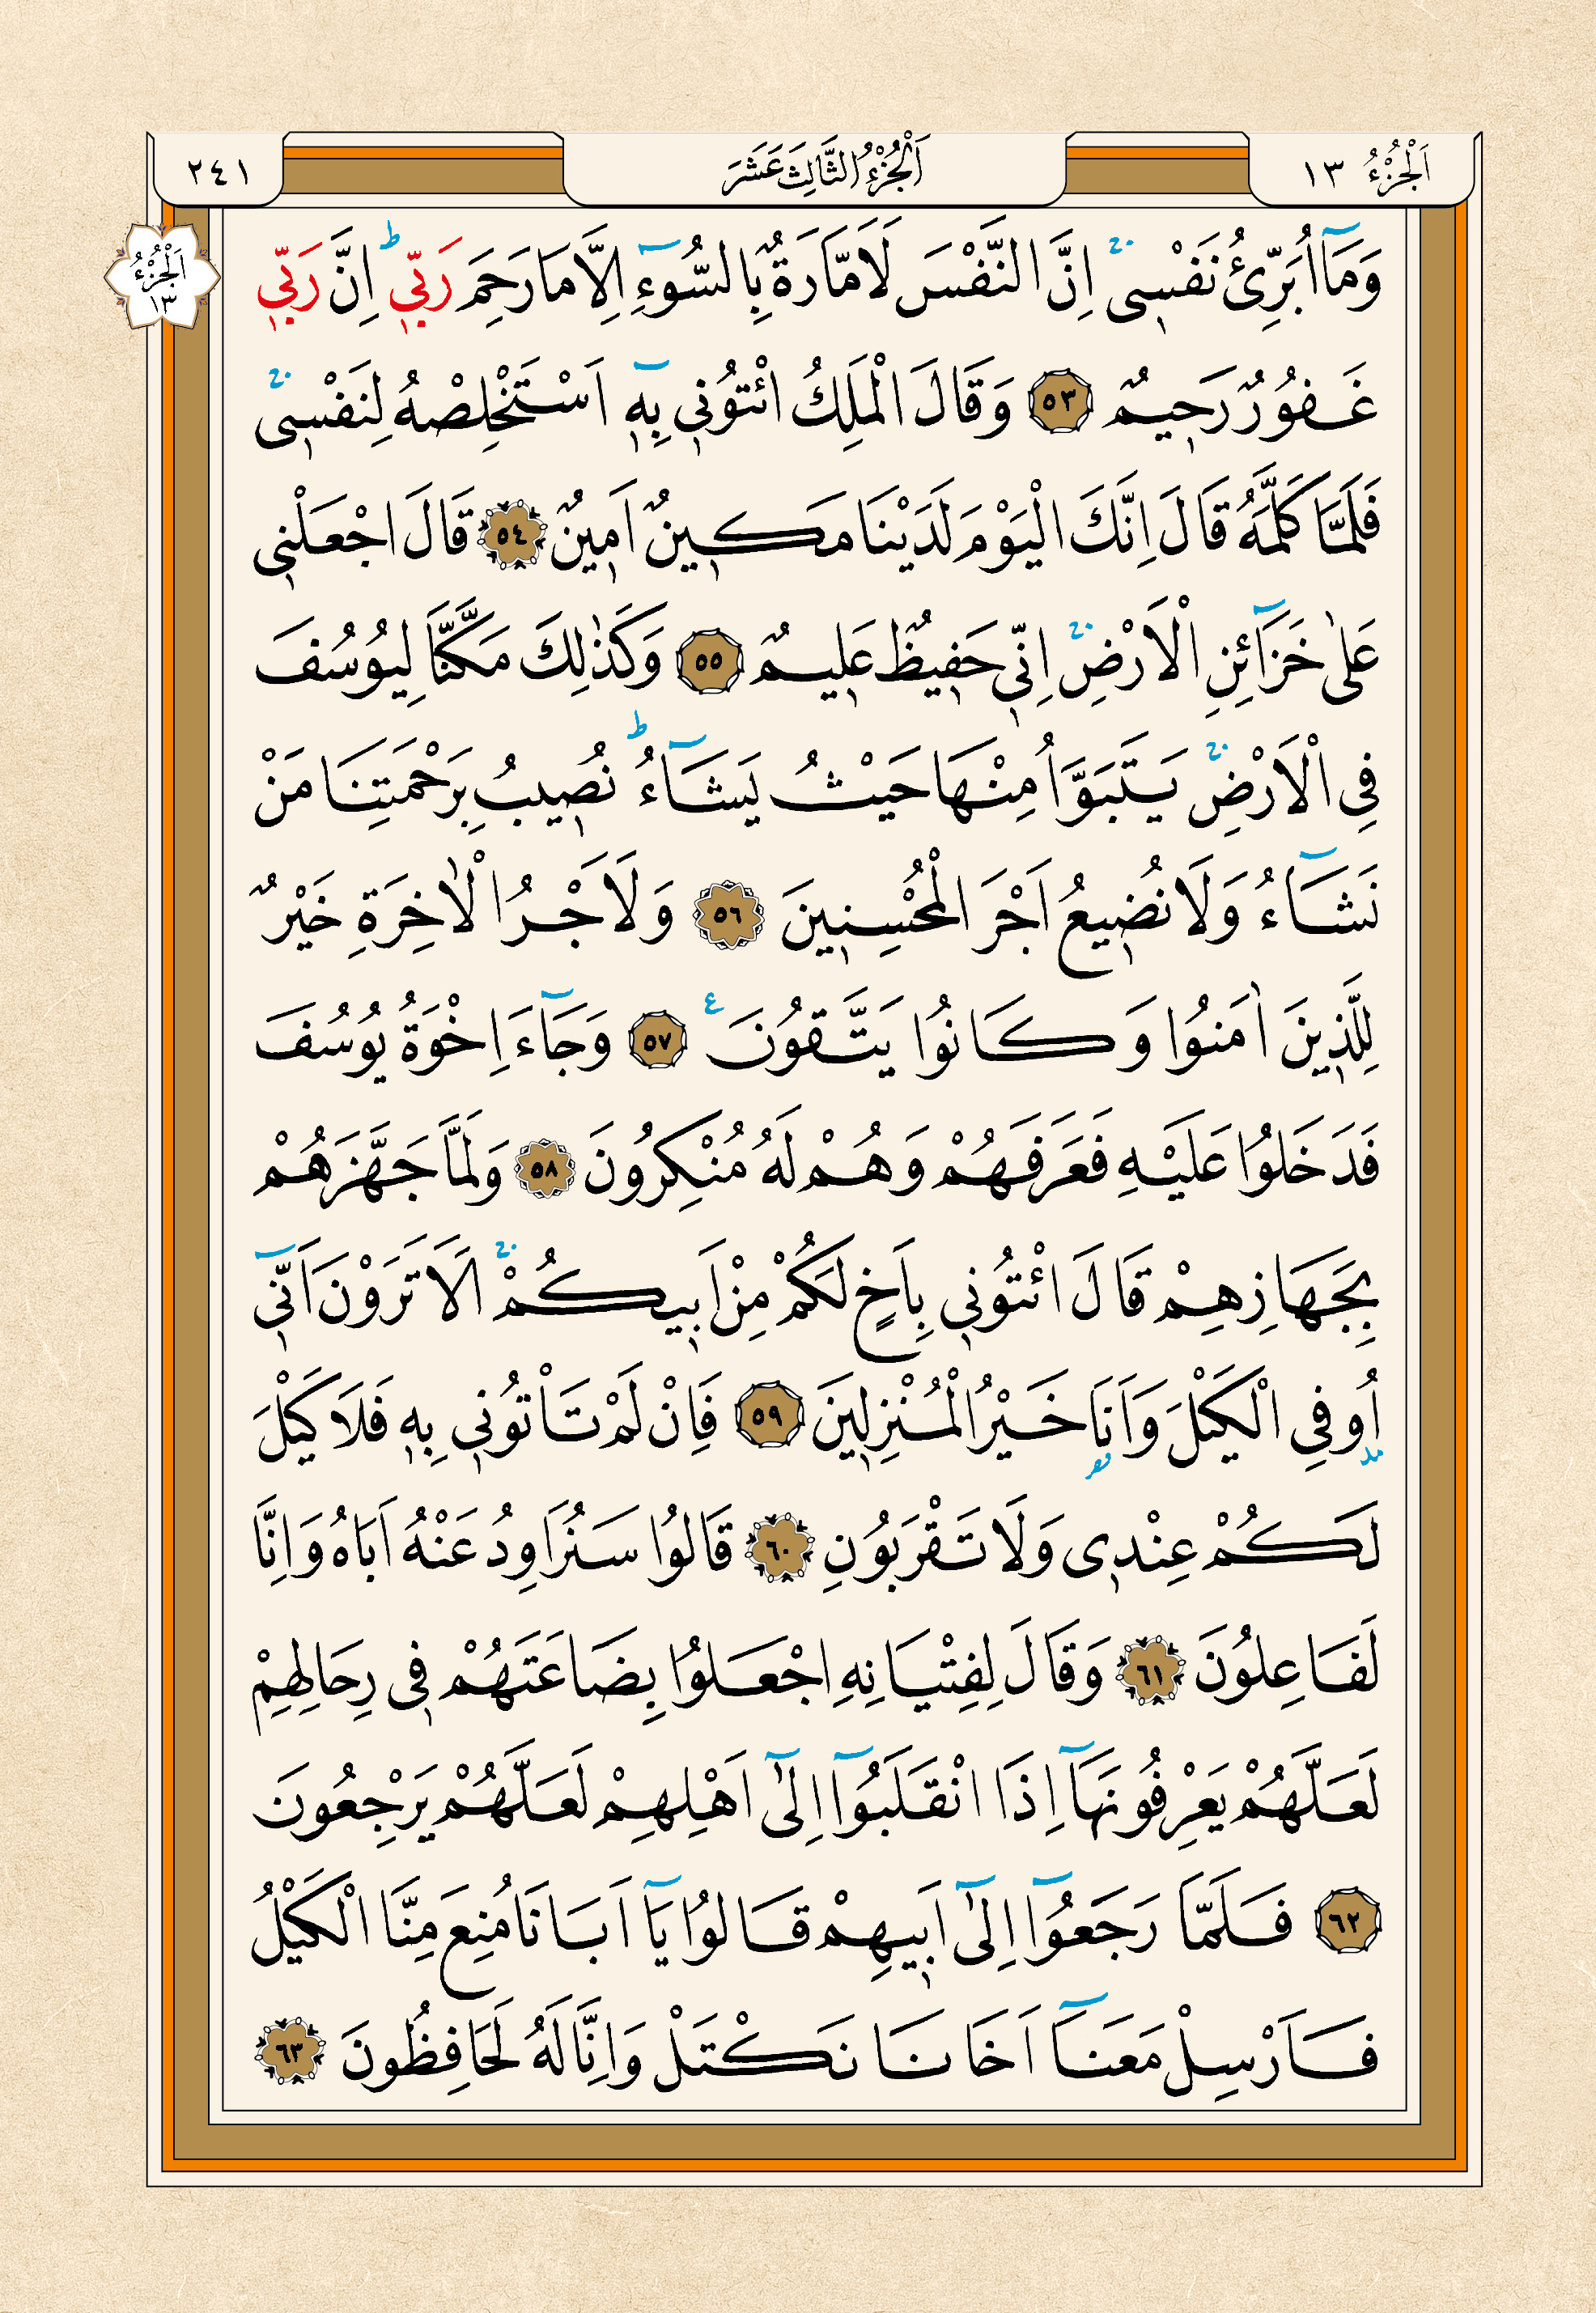 اَلْجُزْءُ ١٣
اَلْجُزْءُ الثَّالِثَ عَشَرَ
٢٤١
اَلْجُزْءُ
١٣
وَمَٓا اُبَرِّئُ نَفْسٖىۚ اِنَّ النَّفْسَ لَاَمَّارَةٌ بِالسُّٓوءِ اِلَّا مَا رَحِمَ رَبّٖىؕ اِنَّ رَبّٖى
غَفُورٌ رَحٖيمٌ ﴿٥٣﴾ وَقَالَ الْمَلِكُ ائْتُونٖى بِهٖٓ اَسْتَخْلِصْهُ لِنَفْسٖىۚ
فَلَمَّا كَلَّمَهُ قَالَ اِنَّكَ الْيَوْمَ لَدَيْنَا مَكٖينٌ اَمٖينٌ ﴿٥٤﴾ قَالَ اجْعَلْنٖى
عَلٰى خَزَٓائِنِ الْاَرْضِۚ اِنّٖى حَفٖيظٌ عَلٖيمٌ ﴿٥٥﴾ وَكَذٰلِكَ مَكَّنَّا لِيُوسُفَ
فِى الْاَرْضِۚ يَتَبَوَّاُ مِنْهَا حَيْثُ يَشَٓاءُؕ نُصٖيبُ بِرَحْمَتِنَا مَنْ
نَشَٓاءُ وَلَا نُضٖيعُ اَجْرَ الْمُحْسِنٖينَ ﴿٥٦﴾ وَلَاَجْرُ الْاٰخِرَةِ خَيْرٌ
لِلَّذٖينَ اٰمَنُوا وَكَانُوا يَتَّقُونَ ع ﴿٥٧﴾ وَجَٓاءَ اِخْوَةُ يُوسُفَ
فَدَخَلُوا عَلَيْهِ فَعَرَفَهُمْ وَهُمْ لَهُ مُنْكِرُونَ ﴿٥٨﴾ وَلَمَّا جَهَّزَهُمْ
بِجَهَازِهِمْ قَالَ ائْتُونٖى بِاَخٍ لَكُمْ مِنْ اَبٖيكُمْۚ اَلَا تَرَوْنَ اَنّٖٓى
اُوفِى الْكَيْلَ وَاَنَا خَيْرُ الْمُنْزِلٖينَ ﴿٥٩﴾ فَاِنْ لَمْ تَاْتُونٖى بِهٖ فَلَا كَيْلَ
لَكُمْ عِنْدٖى وَلَا تَقْرَبُونِ ﴿٦٠﴾ قَالُوا سَنُرَاوِدُ عَنْهُ اَبَاهُ وَاِنَّا
لَفَاعِلُونَ ﴿٦١﴾ وَقَالَ لِفِتْيَانِهِ اجْعَلُوا بِضَاعَتَهُمْ فٖى رِحَالِهِمْ
لَعَلَّهُمْ يَعْرِفُونَهَٓا اِذَا انْقَلَبُٓوا اِلٰٓى اَهْلِهِمْ لَعَلَّهُمْ يَرْجِعُونَ
﴿٦٢﴾ فَلَمَّا رَجَعُٓوا اِلٰٓى اَبٖيهِمْ قَالُوا يَٓا اَبَانَا مُنِعَ مِنَّا الْكَيْلُ
فَاَرْسِلْ مَعَنَٓا اَخَانَا نَكْتَلْ وَاِنَّا لَهُ لَحَافِظُونَ ﴿٦٣﴾